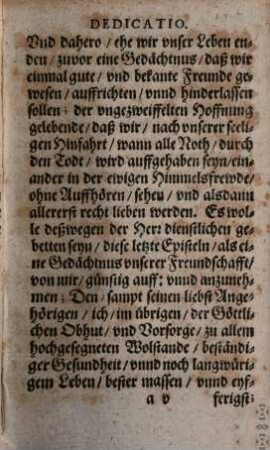 DEDICATIO.
Vnd dahero / ehe wir vnser Leben en-
den / zuvor eine Gedächtnus / daß wir
einmal gute / vnd bekante Freunde ge-
wesen / auffrichten / vnnd hinderlassen
sollen: der vngezweiffelten Hoffnung
gelebende / daß wir / nach vnserer seeli-
gen Hinfahrt / wann alle Noth / durch
den Todt / wird auffgehaben seyn / ein-
ander in der ewigen Himmelsfrewde /
ohne Auffhören / sehen / vnd alsdann
allererst recht lieben werden. Es wol-
le deßwegen der Herr dienstlichen ge-
betten seyn / diese letzte Episteln / als ei-
ne Gedächtnus vnserer Freundschafft /
von mir / günstig auff: vnnd anzuneh-
men; Den / sampt seinen liebst Ange-
hörigen / ich / im übrigen / der Göttli-
chen Obhut / vnd Vorsorge / zu allem
hochgesegneten Wolstande / beständi-
ger Gesundheit / vnnd noch langwüri-
gem Leben / bester massen / vnnd eyf-
a v ferigst: